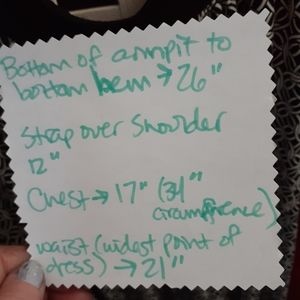 Bottom of armpit to
bottom hem → 26"
Strap over shoulder
12"
Chest → 17" (34"
circumference)
waist (widest point of
dress) → 21"